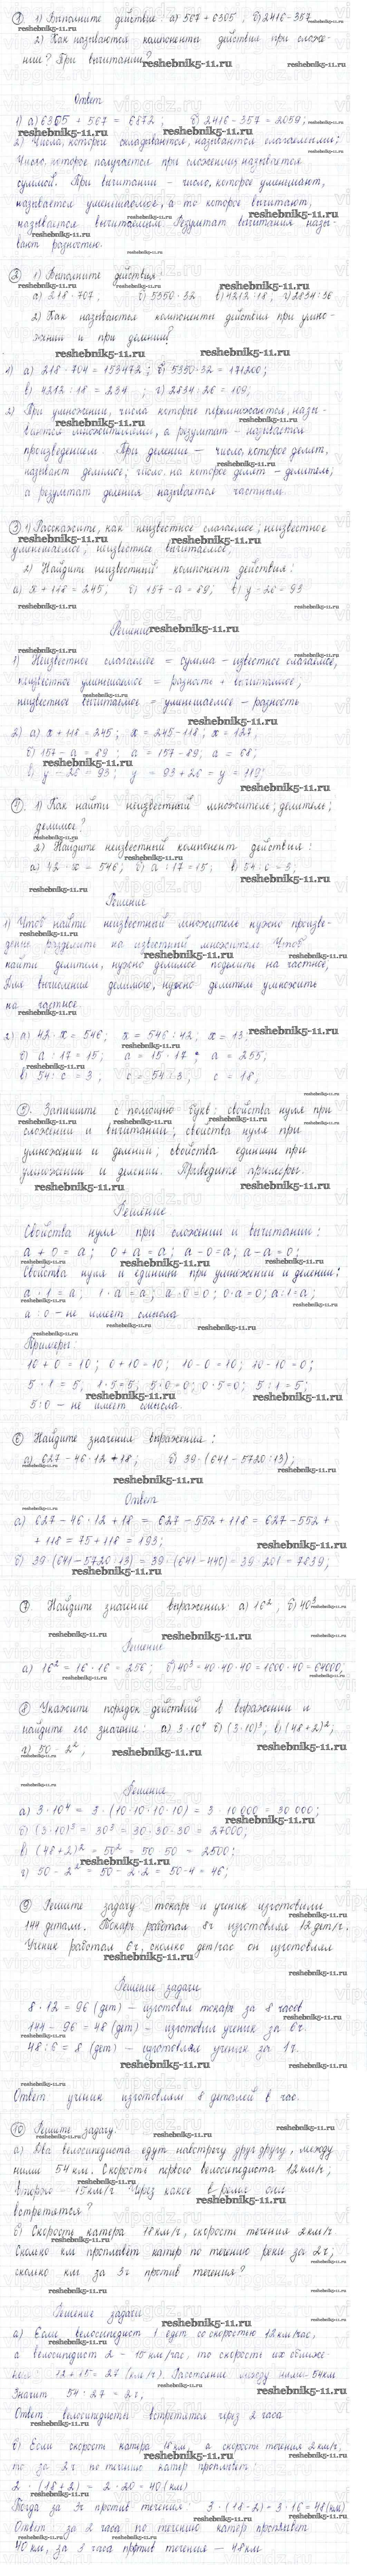 ① 1) Выполните действие: а) 567 + 6305 ; б) 2416 - 357
2) Как называются компоненты действия при сложе-
нии? При вычитании?
Ответ
1) а) 6305 + 567 = 6872 ; б) 2416 - 357 = 2059;
2) Числа, которые складываются, называются слагаемыми;
Число, которое получается при сложении, называется
суммой. При вычитании - число, которое уменьшают,
называется уменьшаемое, а то которое вычитают,
называется вычитаемым. Результат вычитания назы-
вают разностью.
② 1) Выполните действия:
а) 218 · 707, б) 5350 · 32 в) 4212 : 18 ; г) 2834 : 26
2) Как называются компоненты действия при умно-
жении и при делении?
1) а) 218 · 704 = 153472 ; б) 5350 · 32 = 171200;
в) 4212 : 18 = 234 ; г) 2834 : 26 = 109;
2) При умножении, числа которые перемножаются, назы-
ваются множителями, а результат - называется
произведением. При делении - число, которое делят,
называют делимое, число, на которое делят - делитель;
а результат деления называется частным.
③ 1) Расскажите, как неизвестное слагаемое; неизвестное
уменьшаемое; неизвестное вычитаемое,
2) Найдите неизвестный компонент действия:
а) x + 118 = 245; б) 157 - a = 89; в) y - 26 = 93
Решение
1) Неизвестное слагаемое = сумма - известное слагаемое,
неизвестное уменьшаемое = разность + вычитаемое,
неизвестное вычитаемое = уменьшаемое - разность
2) а) x + 118 = 245; x = 245 - 118; x = 127,
б) 157 - a = 89 ; a = 157 - 89; a = 68;
в) y - 26 = 93; y = 93 + 26 = y = 119;
④. 1) Как найти неизвестный множитель; делитель;
делимое?
2) Найдите неизвестный компонент действия:
а) 42 · x = 546; б) a : 17 = 15; в) 54 : c = 3;
Решение
1) Чтоб найти неизвестный множитель нужно произве-
дение разделить на известный множитель. Чтоб
найти делитель, нужно делимое поделить на частное,
Для вычисления делимого, нужно делитель умножить
на частное.
2) а) 42 · x = 546; x = 546 : 42; x = 13;
б) a : 17 = 15; a = 15 · 17 a = 255,
в) 54 : c = 3 ; c = 54 : 3 , c = 18,
⑤. Запишите с помощью букв свойства нуля при
сложении и вычитании; свойства нуля при
умножении и делении; свойства единицы при
умножении и делении. Приведите примеры.
Решение
Свойства нуля при сложении и вычитании:
a + 0 = a; 0 + a = a; a - 0 = a; a - a = 0;
Свойства нуля и единицы при умножении и делении:
a · 1 = a; 1 · a = a; a · 0 = 0; 0 · a = 0; a : 1 = a;
a : 0 - не имеет смысла
Примеры:
10 + 0 = 10; 0 + 10 = 10; 10 - 0 = 10; 10 - 10 = 0;
5 · 1 = 5, 1 · 5 = 5; 5 · 0 = 0; 0 · 5 = 0; 5 : 1 = 5;
5 : 0 - не имеет смысла.
⑥ Найдите значения выражения:
а) 627 - 46 · 12 + 18; б) 39 · (641 - 5720 : 13);
Ответ
а) 627 - 46 · 12 + 18 = 627 - 552 + 118 = 627 - 552 +
+ 118 = 75 + 118 = 193;
б) 39 · (641 - 5720 : 13) = 39 · (641 - 440) = 39 · 201 = 7839;
⑦. Найдите значение выражения: а) 16², б) 40³
Решение
а) 16² = 16 · 16 = 256; б) 40³ = 40 · 40 · 40 = 1600 · 40 = 64000;
⑧ Укажите порядок действий в выражении и
найдите его значение: а) 3 · 10⁴ б) (3 · 10)³; в) (48 + 2)²;
г) 50 - 2²,
Решение
а) 3 · 10⁴ = 3 · (10 · 10 · 10 · 10) = 3 · 10 000 = 30 000;
б) (3 · 10)³ = 30³ = 30 · 30 · 30 = 27000;
в) (48 + 2)² = 50² = 50 · 50 = 2500;
г) 50 - 2² = 50 - 2 · 2 = 50 - 4 = 46;
⑨ Решите задачу: токарь и ученик изготовили
144 детали. Токарь работал 8ч изготовляя 12 дет/ч.
Ученик работал 6ч, сколько дет/час он изготовлял
Решение задачи
8 · 12 = 96 (дет) - изготовил токарь за 8 часов
144 - 96 = 48 (дет) - изготовил ученик за 6ч
48 : 6 = 8 (дет) - изготовлял ученик за 1ч.
Ответ ученик изготовлял 8 деталей в час.
⑩ Решите задачу:
а) Два велосипедиста едут навстречу друг другу, между
ними 54 км. Скорость первого велосипедиста 12 км/ч;
второго - 15 км/ч Через какое время они
встретятся?
б) Скорость катера 18 км/ч, скорость течения 2 км/ч
Сколько км проплывёт катер по течению реки за 2ч;
сколько км за 3ч против течения?
Решение задачи
а) Если велосипедист 1 едет со скоростью 12 км/час,
а велосипедист 2 - 15 км/час, то скорость их сближе-
ния: 12 + 15 = 27 (км/ч). Расстояние между ними 54 км
Значит 54 : 27 = 2ч,
Ответ велосипедисты встретятся через 2 часа
б) Если скорость катера 18 км, а скорость течения 2 км/ч,
то за 2ч по течению катер проплывёт:
2 · (18 + 2) = 2 · 20 = 40 (км)
Тогда за 3ч против течения 3 · (18 - 2) = 3 · 16 = 48 (км)
Ответ за 2 часа по течению катер проплывёт
40 км, за 3 часа против течения - 48 км